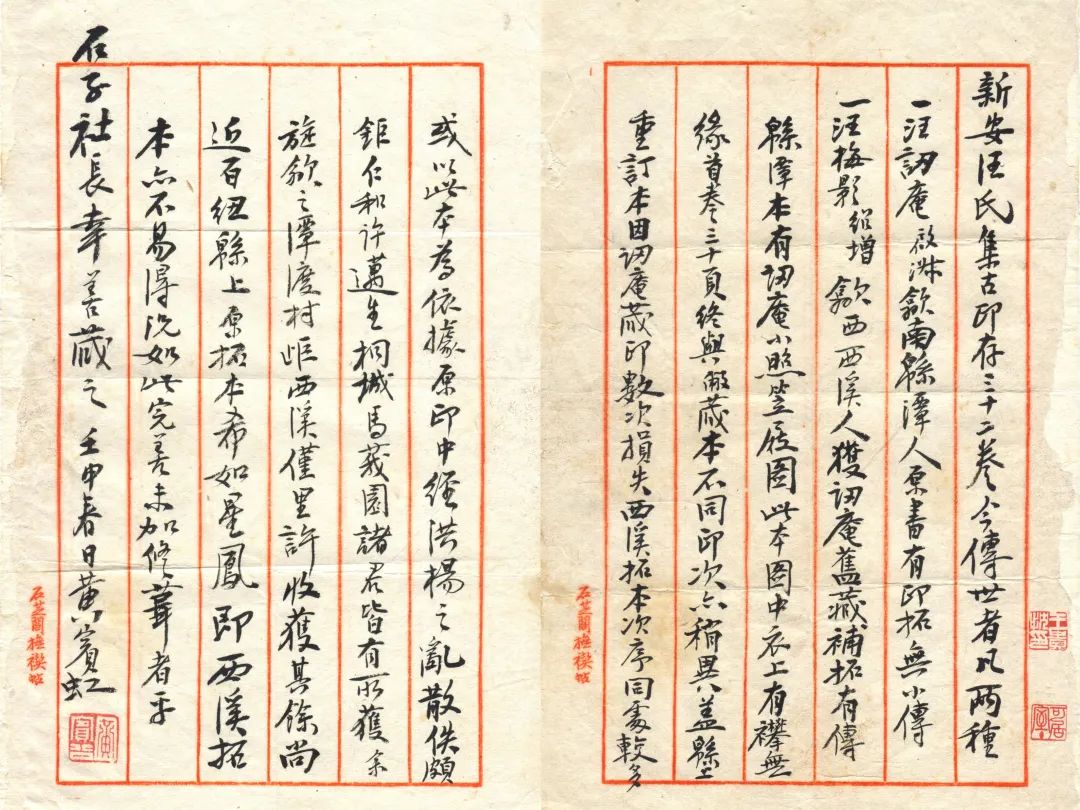 新安汪氏集古印存三十二卷今傳世者凡兩種
一汪訒庵啟淑歙南緜潭人原書有印拓無小傳
一汪梅影 歙西西溪人獲訒庵舊藏補拓有傳
緜潭本有訒庵小照笠屐圖此本圖中衣上有襻無
緣首卷三十頁終與敝藏本不同印次亦稍異蓋緜上
重訂本因訒庵藏印數次損失西溪拓本次序同處較多
或以此本為依據原印中經洪楊之亂散佚頗
鉅仁和許邁生桐城馬莪園諸君皆有所獲余
旋歙之潭渡村岠西溪僅里許收獲其餘尚
近百鈕緜上原拓本希如星鳳即西溪拓
本亦不易得況如此完善未加修葺者乎
石子社長幸善藏之 壬申春日黃賓虹